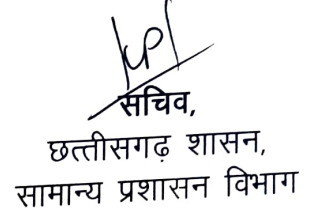 सचिव,
छत्तीसगढ़ शासन,
सामान्य प्रशासन विभाग